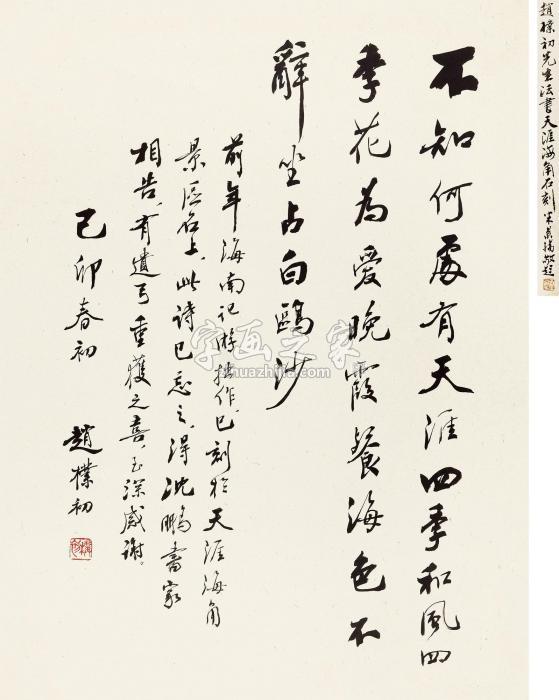 不知何處有天涯四季和風四
季花為愛晚霞餐海色不
辭坐占白鷗沙
前年海南記游拙作、已刻於天涯海角
景區名上、此诗已忘之、得沈鵬書家
相告、有遺弓重獲之喜、至深感谢。
己卯春初
趙樸初
趙樸初先生法書天涯海角石刻
字画之家
zihuazhijia.com